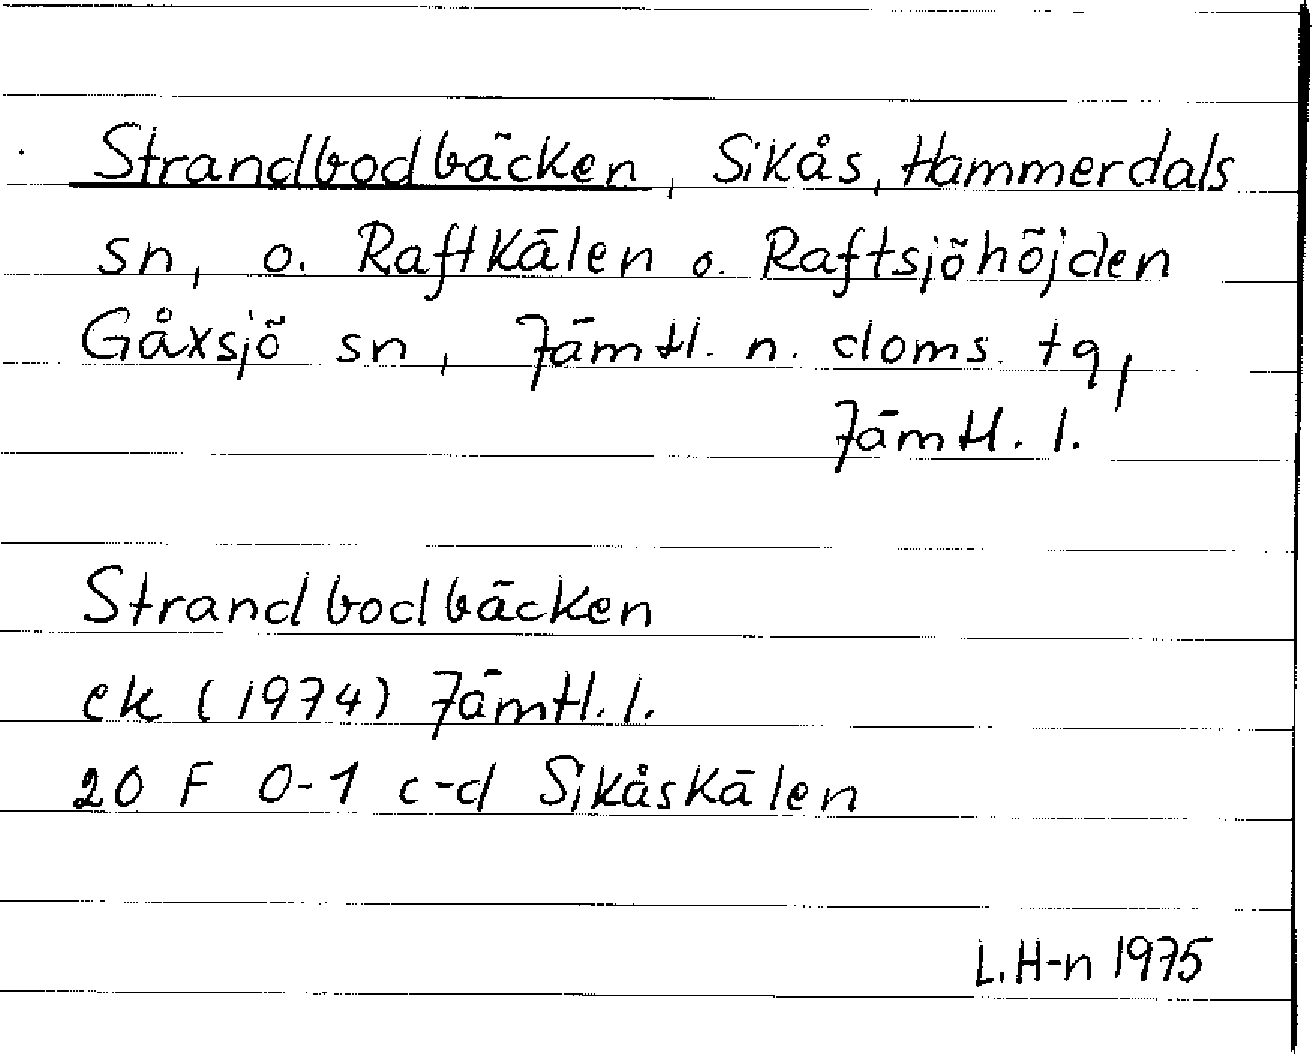 Strandbodbäcken, Sikås, Hammerdals
sn, o. Raftkälen o. Raftsjöhöjden
Gåxsjö sn, Jämtl. n. doms. tg,
Jämtl. l.
Strandbodbäcken
ek (1974) Jämtl. l.
20 F 0-1 c-d Sikåskälen
L. H-n 1975